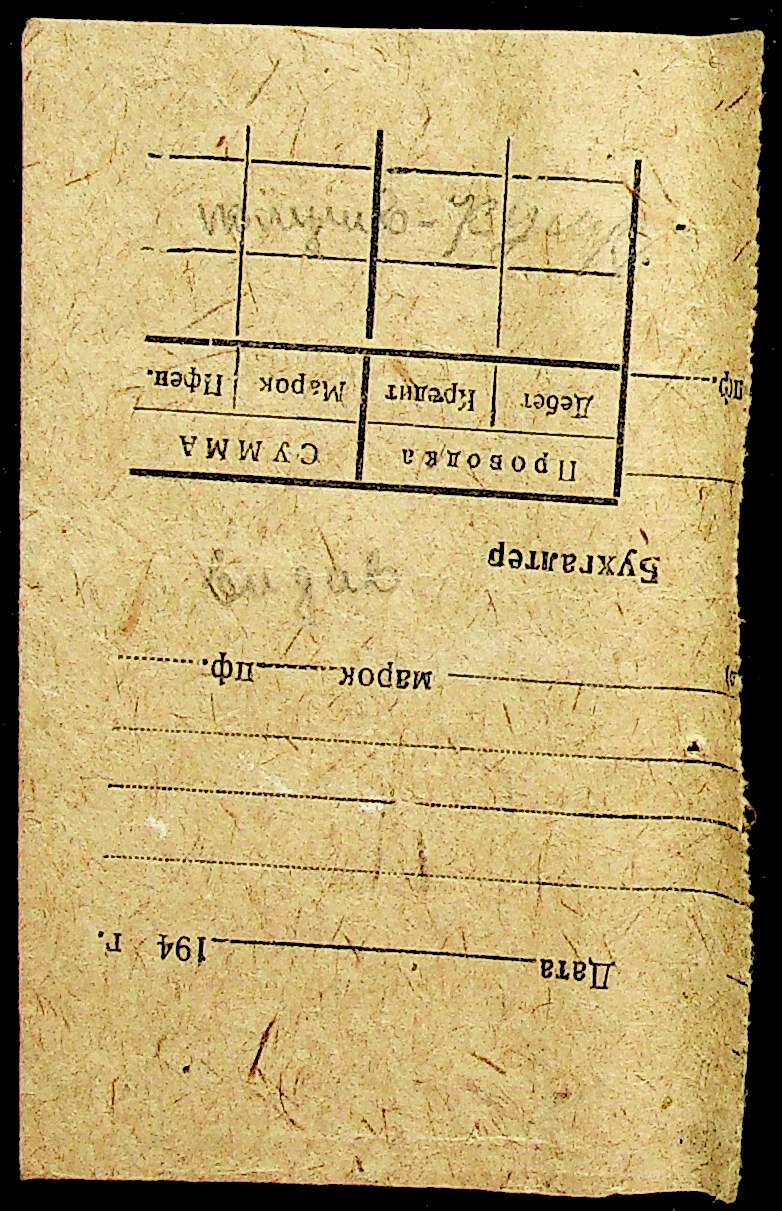 Дата 194 г.
марок пф.
Бухгалтер
Проводка СУММА
Дебет Кредит Марок Пфен.
пф.